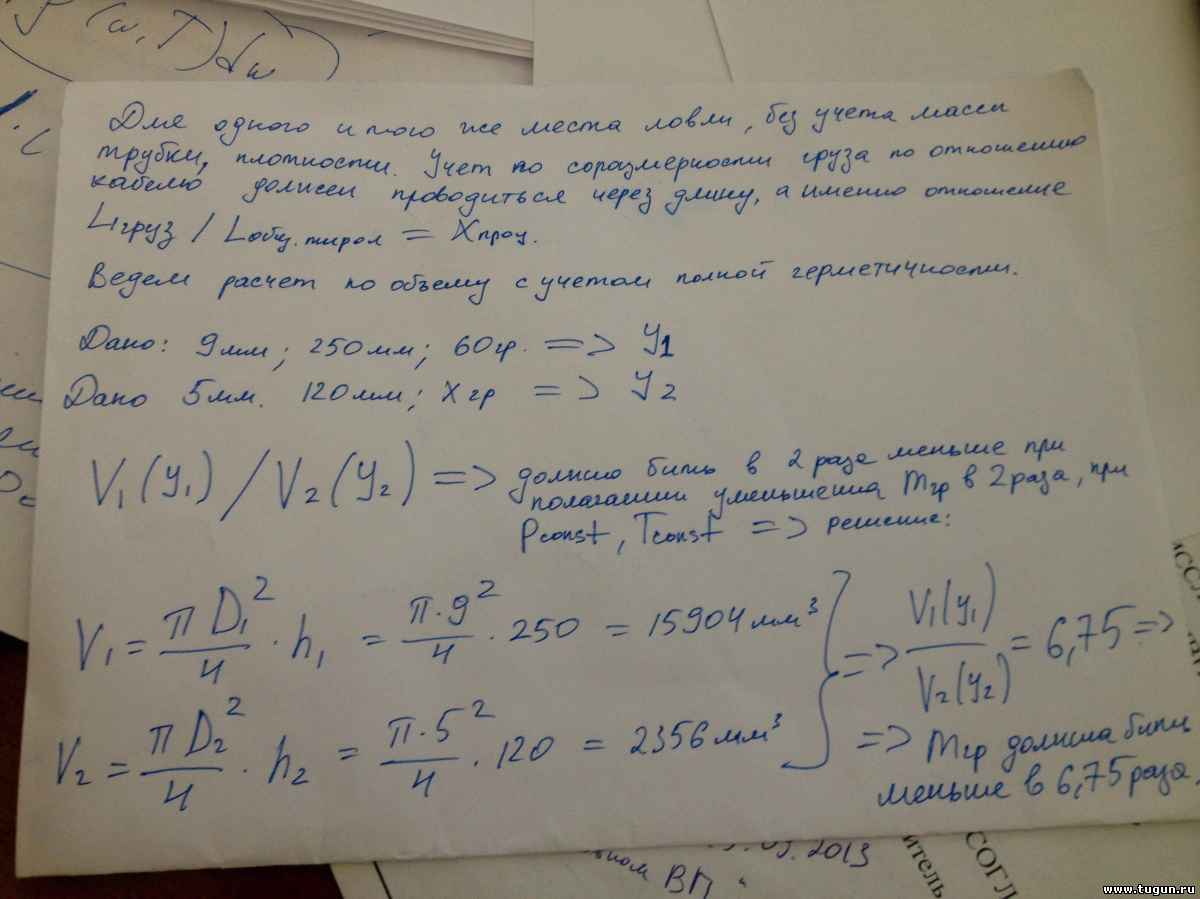 P (ω, T) dω
Для одного и того же места ловли, без учета массы
трубки, плотности. Учет по соразмерности груза по отношению
кабелю должен проводиться через длину, а именно отношение
Lгруз / Lобщ. тирол = Xпроц.
Ведем расчет по объему с учетом полной герметичности.
Дано: 9мм; 250мм; 60гр. => У1
Дано 5мм. 120мм; Xгр => У2
V₁(У₁) / V₂(У₂) => должно быть в 2 раза меньше при
полагании уменьшения Mгр в 2 раза, при
Pconst, Tconst => решение:
V₁ = πD₁²/4 · h₁ = π·9²/4 · 250 = 15904мм³
V₂ = πD₂²/4 · h₂ = π·5²/4 · 120 = 2356мм³
=> V₁(У₁)/V₂(У₂) = 6,75 =>
=> Mгр должна быть
меньше в 6,75 раза.
2013
ВП
итель
СОГЛ
www.tugun.ru